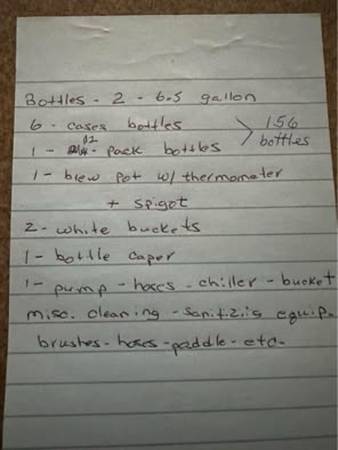 Bottles - 2 - 6.5 gallon
6 - cases bottles > 156 bottles
1 - 12 - pack bottles
1 - brew pot w/ thermometer
+ spigot
2 - white buckets
1 - bottle caper
1 - pump - hoses - chiller - bucket
misc. cleaning - sanitizis equip.
brushes - hoses - paddle - etc.